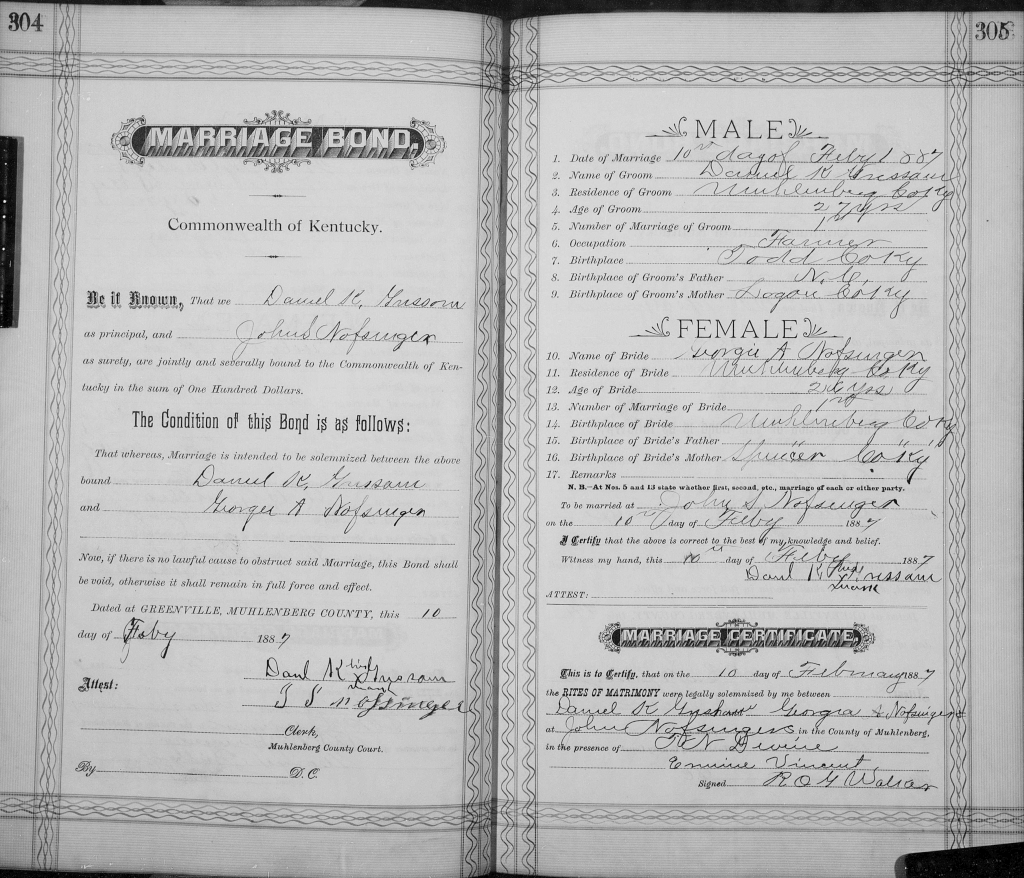 304
MARRIAGE BOND,
Commonwealth of Kentucky.
Be it Known, That we Daniel K, Grissom
as principal, and John S Nofsinger
as surety, are jointly and severally bound to the Commonwealth of Ken-
tucky in the sum of One Hundred Dollars.
The Condition of this Bond is as follows:
That whereas, Marriage is intended to be solemnized between the above
bound Daniel K, Grissom
and Georgee A Nofsinger
Now, if there is no lawful cause to obstruct said Marriage, this Bond shall
be void, otherwise it shall remain in full force and effect.
Dated at GREENVILLE, MUHLENBERG COUNTY, this 10
day of Feby 1887
Danl K his Grissom
Attest: mark
J S Nofsinger
Clerk,
Muhlenberg County Court.
By D. C.
305
MALE
1. Date of Marriage 10th day of Feby 1887
2. Name of Groom Daniel K Grissom
3. Residence of Groom Muhlenberg Co Ky
4. Age of Groom 27 yrs
5. Number of Marriage of Groom 1st
6. Occupation Farmer
7. Birthplace Todd Co Ky
8. Birthplace of Groom's Father N. C,
9. Birthplace of Groom's Mother Logan Co, Ky
FEMALE
10. Name of Bride Georgie A Nofsinger
11. Residence of Bride Muhlenberg Co Ky
12. Age of Bride yrs
13. Number of Marriage of Bride 1st
14. Birthplace of Bride Muhlenberg Co Ky
15. Birthplace of Bride's Father " " "
16. Birthplace of Bride's Mother Spencer Co Ky
17. Remarks
N. B.—At Nos. 5 and 13 state whether first, second, etc., marriage of each or either party.
To be married at John S Nofsinger
on the 10th day of Feby 1887
I Certify that the above is correct to the best of my knowledge and belief.
Witness my hand, this 10th day of Feby 1887
Danl K his Grissom
mark
ATTEST:
MARRIAGE CERTIFICATE,
This is to Certify, that on the 10 day of February 1887
the RITES OF MATRIMONY were legally solemnized by me between
Daniel K Georgia A Nofsinger
at John Nofsingers in the County of Muhlenberg,
in the presence of N Devine
Vincent
Signed R O G Walker